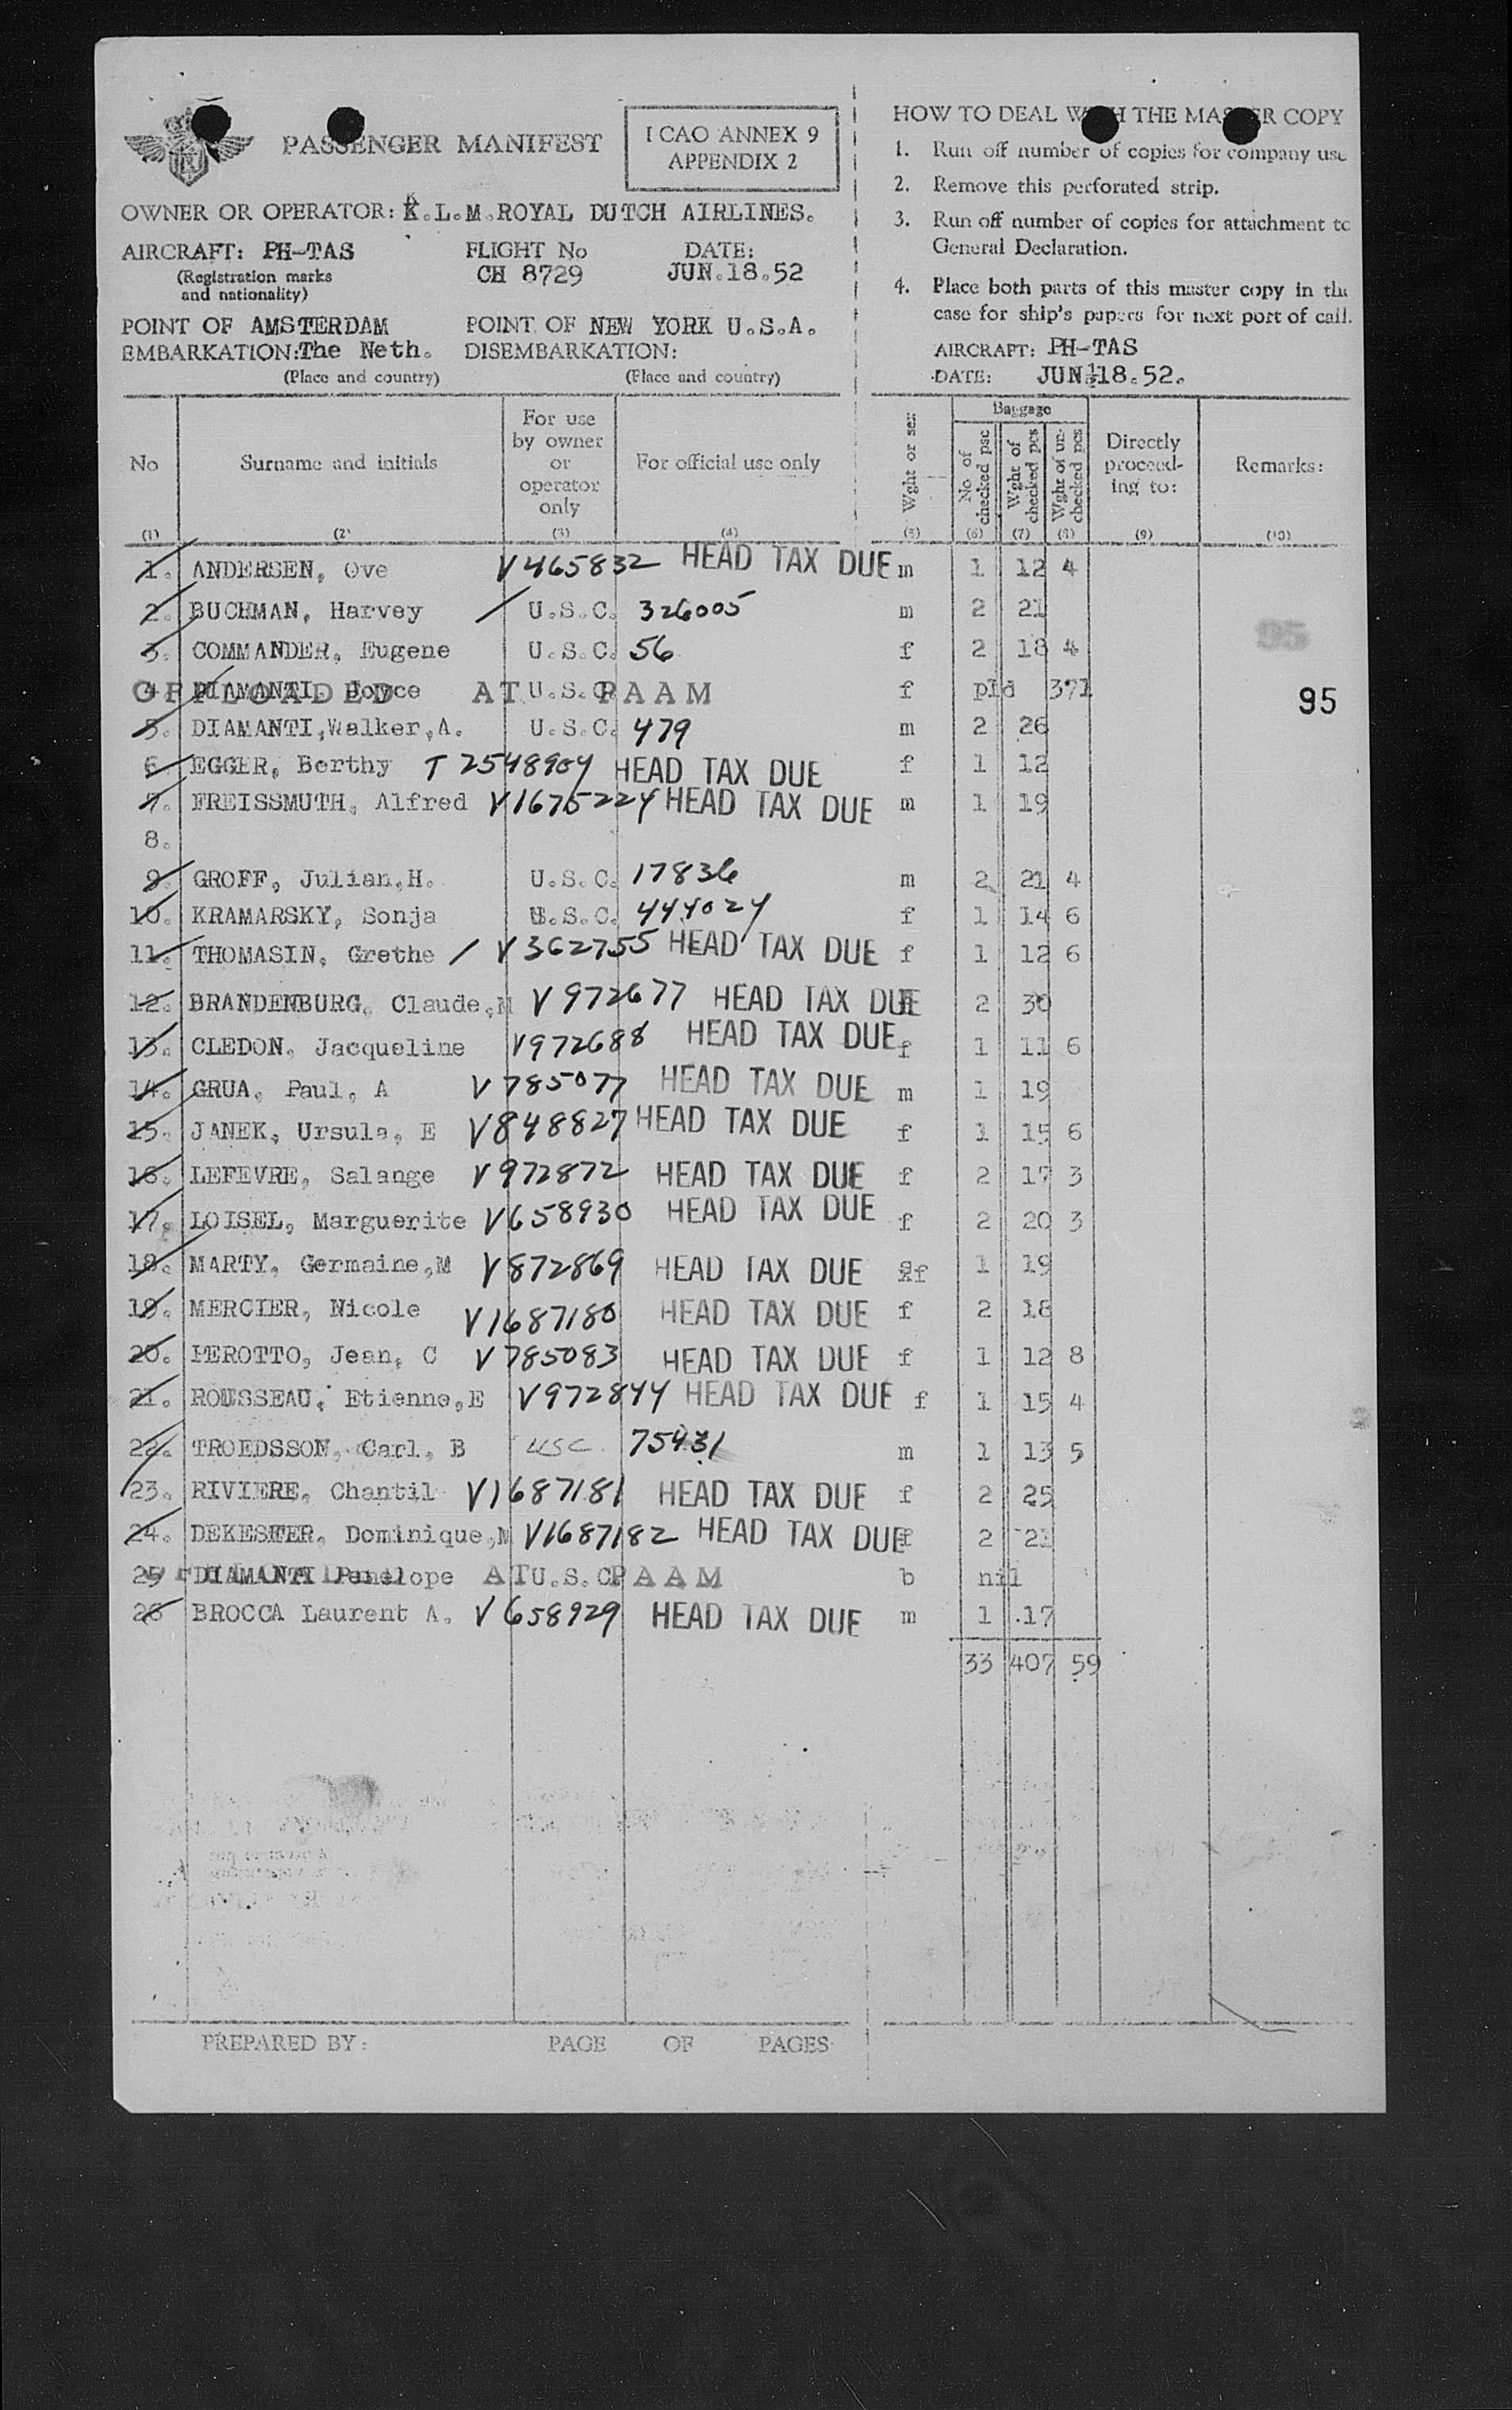 PASSENGER MANIFEST
I CAO ANNEX 9
APPENDIX 2
OWNER OR OPERATOR: K.L.M. ROYAL DUTCH AIRLINES.
AIRCRAFT: PH-TAS FLIGHT No DATE:
(Registration marks CH 8729 JUN.18.52
and nationality)
POINT OF AMSTERDAM POINT OF NEW YORK U.S.A.
EMBARKATION: The Neth. DISEMBARKATION:
(Place and country) (Place and country)
HOW TO DEAL WITH THE MASTER COPY
1. Run off number of copies for company use
2. Remove this perforated strip.
3. Run off number of copies for attachment to
General Declaration.
4. Place both parts of this master copy in the
case for ship's papers for next port of call.
AIRCRAFT: PH-TAS
DATE: JUN 18.52.
No Surname and initials For use by owner or operator only For official use only Wght or sex Baggage No of checked psc Wght of checked pcs Wght of un-checked pcs Directly proceed-ing to: Remarks:
(1) (2) (3) (4) (5) (6) (7) (8) (9) (10)
1. ANDERSEN, Ove V465832 HEAD TAX DUE m 1 12 4
2. BUCHMAN, Harvey / U.S.C. 326005 m 2 21
95
3. COMMANDER, Eugene U.S.C. 56 f 2 18 4
4. DIAMANTI, Joyce U.S.C. f pld 371
OFFLOADED AT PAAM
95
5. DIAMANTI, Walker, A. U.S.C. 479 m 2 26
6 EGGER, Berthy T 2548904 HEAD TAX DUE f 1 12
7. FREISSMUTH, Alfred V1675224 HEAD TAX DUE m 1 19
8.
9. GROFF, Julian, H. U.S.C. 17836 m 2 21 4
10. KRAMARSKY, Sonja U.S.C. 444024 f 1 14 6
11. THOMASIN, Grethe / V362755 HEAD TAX DUE f 1 12 6
12. BRANDENBURG, Claude, M V972677 HEAD TAX DUE 2 30
13. CLEDON, Jacqueline V972688 HEAD TAX DUE f 1 11 6
14. GRUA, Paul, A V785077 HEAD TAX DUE m 1 19
15. JANEK, Ursula, E V848827 HEAD TAX DUE f 1 15 6
16. LEFEVRE, Salange V972872 HEAD TAX DUE f 2 17 3
17. LOISEL, Marguerite V658930 HEAD TAX DUE f 2 20 3
18. MARTY, Germaine, M V872869 HEAD TAX DUE f 1 19
19. MERCIER, Nicole V1687180 HEAD TAX DUE f 2 18
20. PEROTTO, Jean, C V785083 HEAD TAX DUE f 1 12 8
21. ROUSSEAU, Etienne, E V972844 HEAD TAX DUE f 1 15 4
22. TROEDSSON, Carl, B USC 75431 m 1 13 5
23. RIVIERE, Chantil V1687181 HEAD TAX DUE f 2 25
24. DEKESTER, Dominique, M V1687182 HEAD TAX DUE f 2 21
25 DIAMANTI Penelope U.S.C. b nil
AT PAAM
26 BROCCA Laurent A. V658929 HEAD TAX DUE m 1 17
33 407 59
PREPARED BY: PAGE OF PAGES